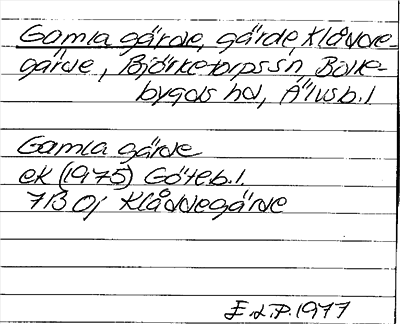 Gamla gärde, gärde, Klåvde-
gärde, Björketorps sn, Bolle-
bygds hd, Älvsb. l
Gamla gärde
ek (1975) Göteb. l.
7B 0j Klåvdegärde
E L.P. 1977